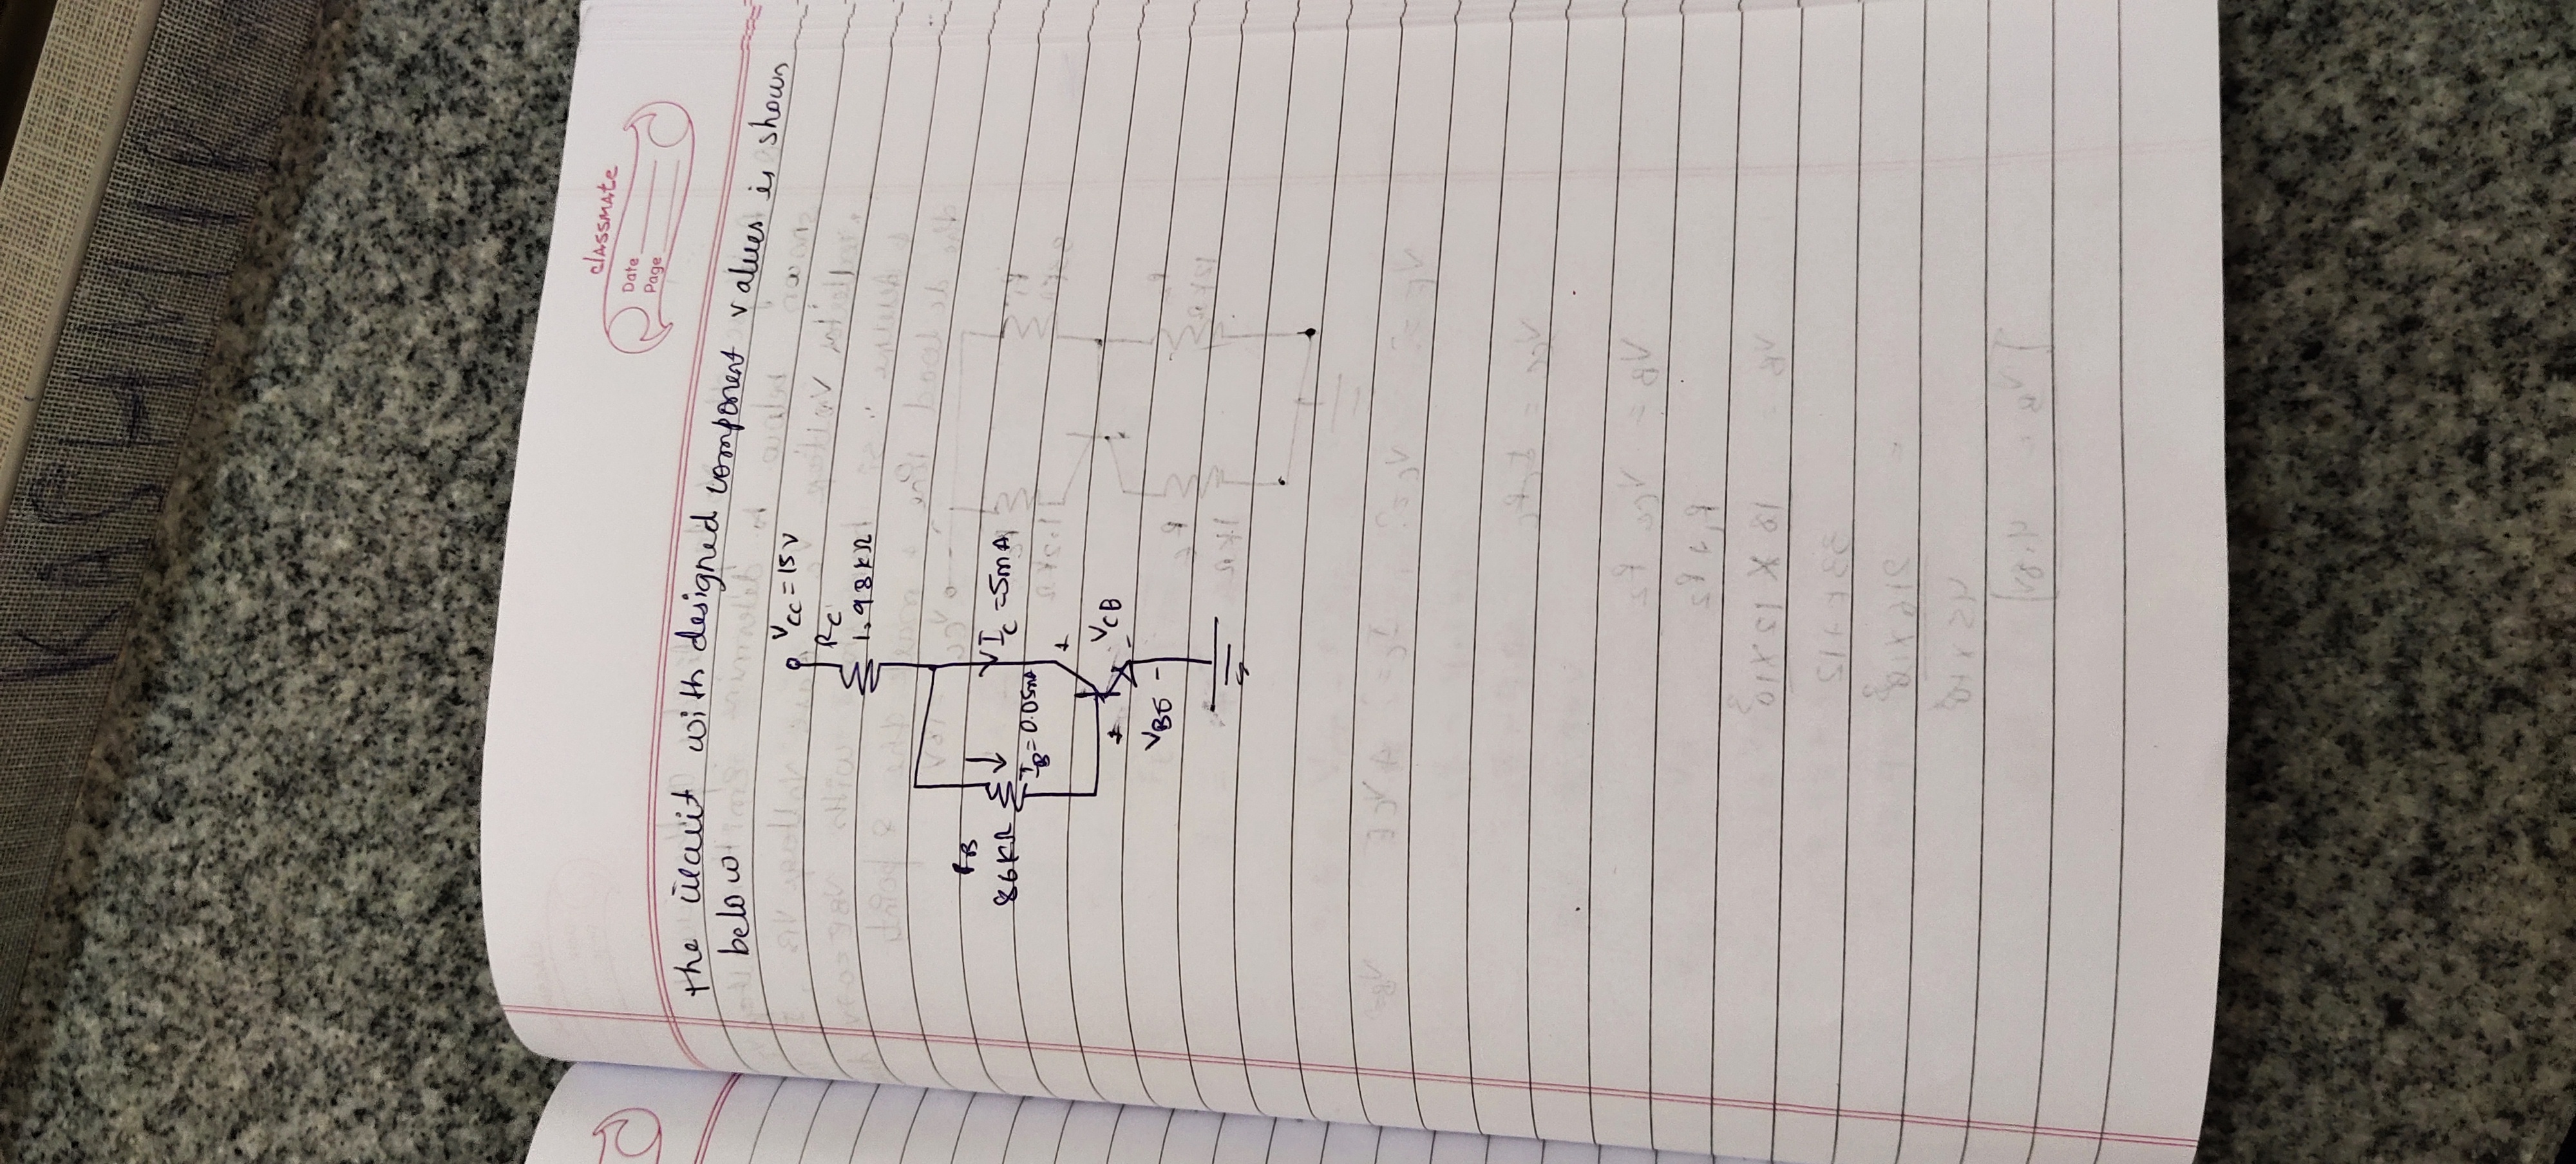 KASHMIR
classmate
Date
Page
the circuit with designed component values is shown
below
VCC = 15V
RC
1.98KΩ
RB
86KΩ
IB = 0.05mA
IC = 5mA
+
VCB
-
+
VBE -